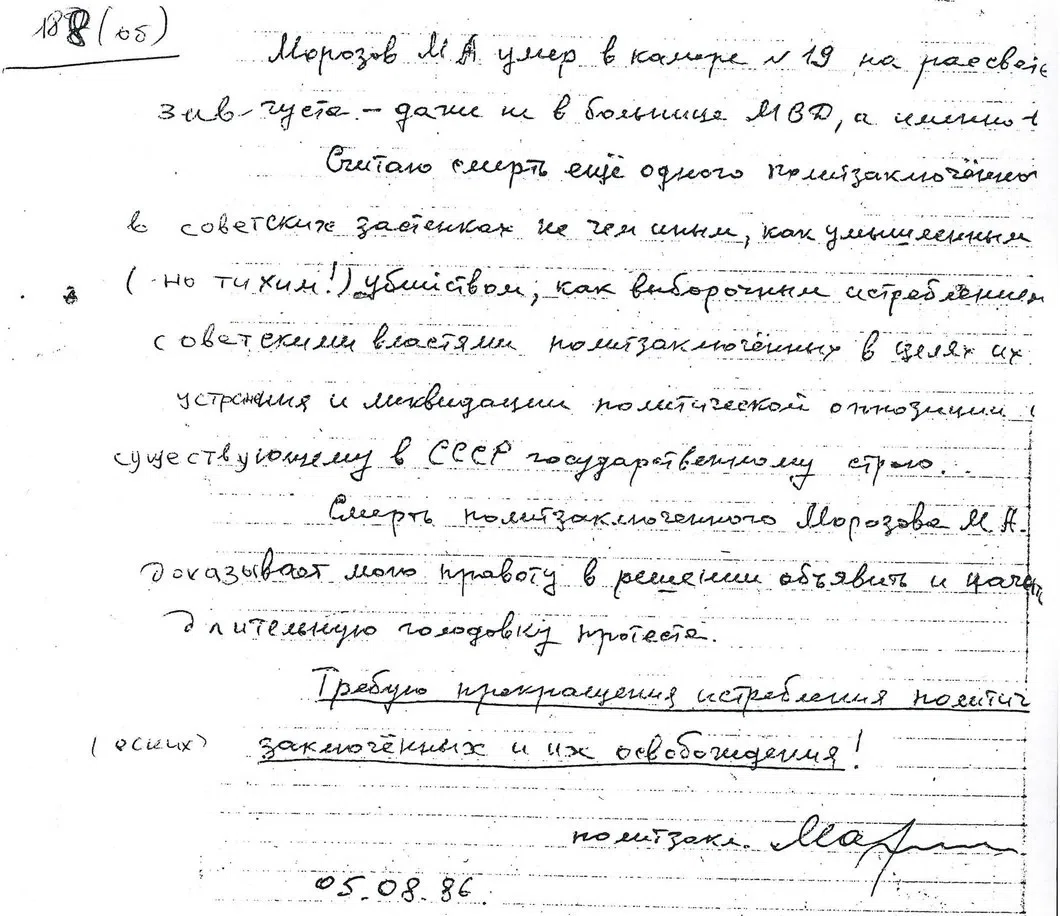 188 (об)
Морозов М А умер в камере N 19 на рассвете
3 августа – даже не в больнице МВД, а именно
Считаю смерть ещё одного политзаключённо
в советских застенках не чем иным, как умышленным
(но тихим!) убийством, как выборочным истреблением
советскими властями политзаключённых в целях их
устранения и ликвидации политической оппозиции
существующему в СССР государственному строю.
Смерть политзаключенного Морозова М.А.
доказывает мою правоту в решении объявить и начать
длительную голодовку протеста.
Требую прекращения истребления политич
(еских) заключённых и их освобождения!
политзакл.
05.08.86.